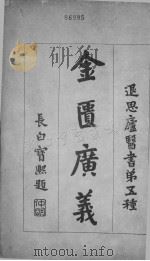 86995
退思廬醫書第五種
金匱廣義
長白寶熙題
mtoou.info